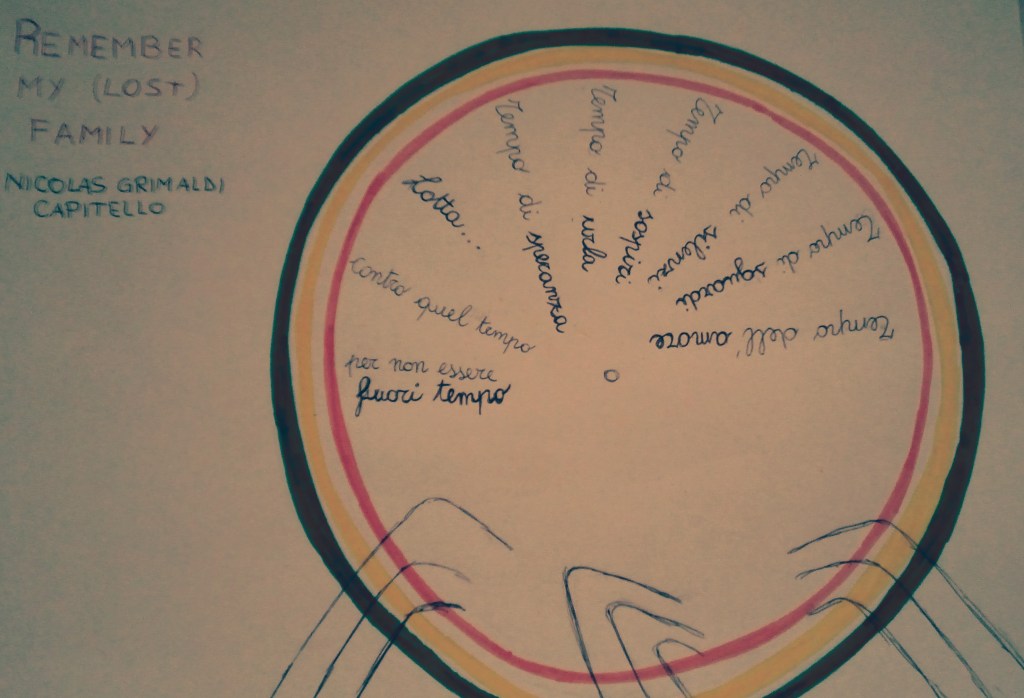 REMEMBER
MY (LOST)
FAMILY
NICOLAS GRIMALDI
CAPITELLO
Lotta...
contro quel tempo
per non essere
fuori tempo
Tempo di speranza
Tempo di urla
Tempo di sospiri
Tempo di silenzi
Tempo di sguardi
Tempo dell'amore